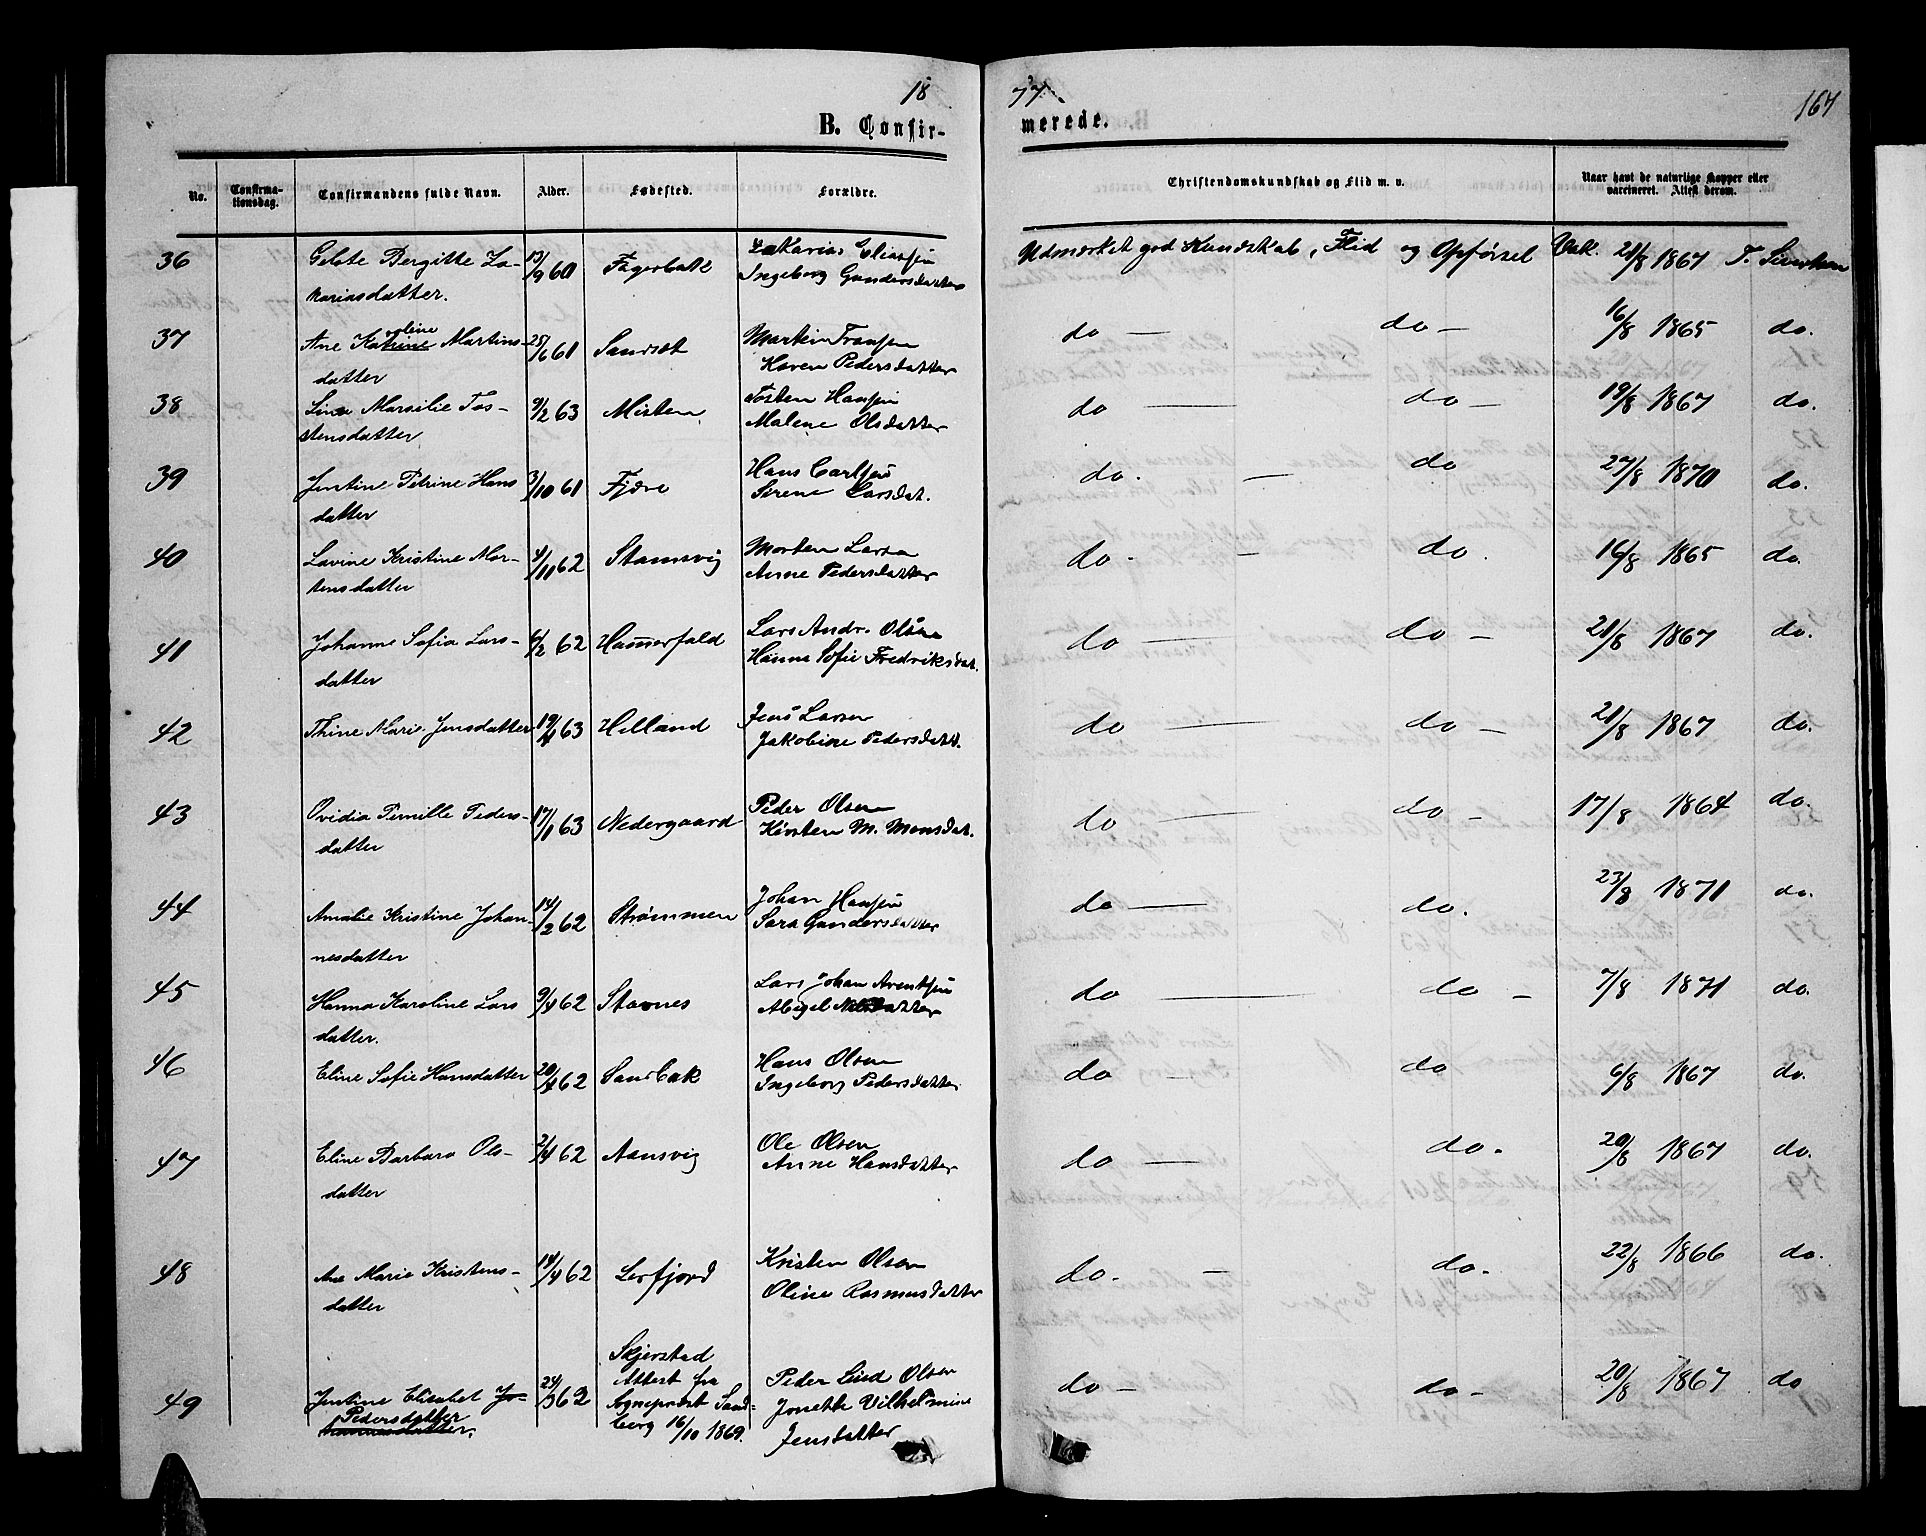 18 77. 167
B. Confir- merede.
No. Confirma- tionsdag. Confirmandens fulde Navn. Alder. Fødested. Forældre. Christendomskundskab og Flid m. v. Naar havt de naturlige Kopper eller vaccineret. Attest derom.
36 Gelste Bergitte Za- 13/9 60 Fagerbakk Zakarias Eliassen Udmærket god Kundskab, Flid og Opførsel Vak. 21/8 1867 T. Sivertsen
kariasdatter. Ingeborg Gundersdatter
37 Ane Katrine oline Martins- 25/6 61 Sandset Martin Fransen do — do — 16/8 1865 do.
datter Karen Pedersdatter
38 Lina Marsilie Tos- 9/2 63 Misten Tosten Hansen do — do — 19/8 1867 do.
stensdatter Malene Olsdatter
39 Justine Petrine Hans 3/10 61 Fjære Hans Carlsen do. — do 27/8 1870 do.
datter Serene Larsdat.
40 Lavine Kristine Mor- 4/11 62 Stamsvig Morten Larsen do - — do. 16/8 1865 do.
tensdatter Anne Pedersdatter
41 Johanne Sofia Lars- 4/2 62 Hamerfald Lars Andr. Olsen do — do — 21/8 1867 do.
datter Hanna Sofie Fredriksdat.
42 Thine Marie Jensdatter 19/4 63 Helland Jens Larsen do — do — 21/8 1867 do.
Jakobine Pedersdatt.
43 Ovidia Pernille Peders- 17/1 63 Nedergaard Peder Olsen do — do — 17/8 1864 do.
datter Kirsten M. Monsdat.
44 Amalie Kristine Johan- 14/2 62 Strømmen Johan Hansen do — do. 23/8 1871 do.
nesdatter Sara Gundersdatter
45 Hanna Karoline Lars 9/4 62 Stavnes Lars Johan Arentsen do — do — 7/8 1871 do.
datter. Abigel Nilsdatter
46 Eline Sofie Hansdatter 20/4 62 Sandbak Hans Olsen do — do 6/8 1867 do.
Ingeborg Pedersdatter
47 Eline Barbara Ols- 2/4 62 Aansvig Ole Olsen do — do. 20/8 1867 do.
datter Anne Hansdatter
48 Ane Marie Kristens- 14/4 62 Leifjord Kristen Olsen do. — do. 22/8 1866 do.
datter Oline Rasmusdatter
49 Justine Elisabet Jo- 24/3 62 Skjerstad Peder Lind Olsen do — do — 20/8 1867 do
Pedersdatter Attest fra Jonette Vilhelmine
hannesdatter. Sognepræst Sand- Jensdatter
berg 16/10 1869.